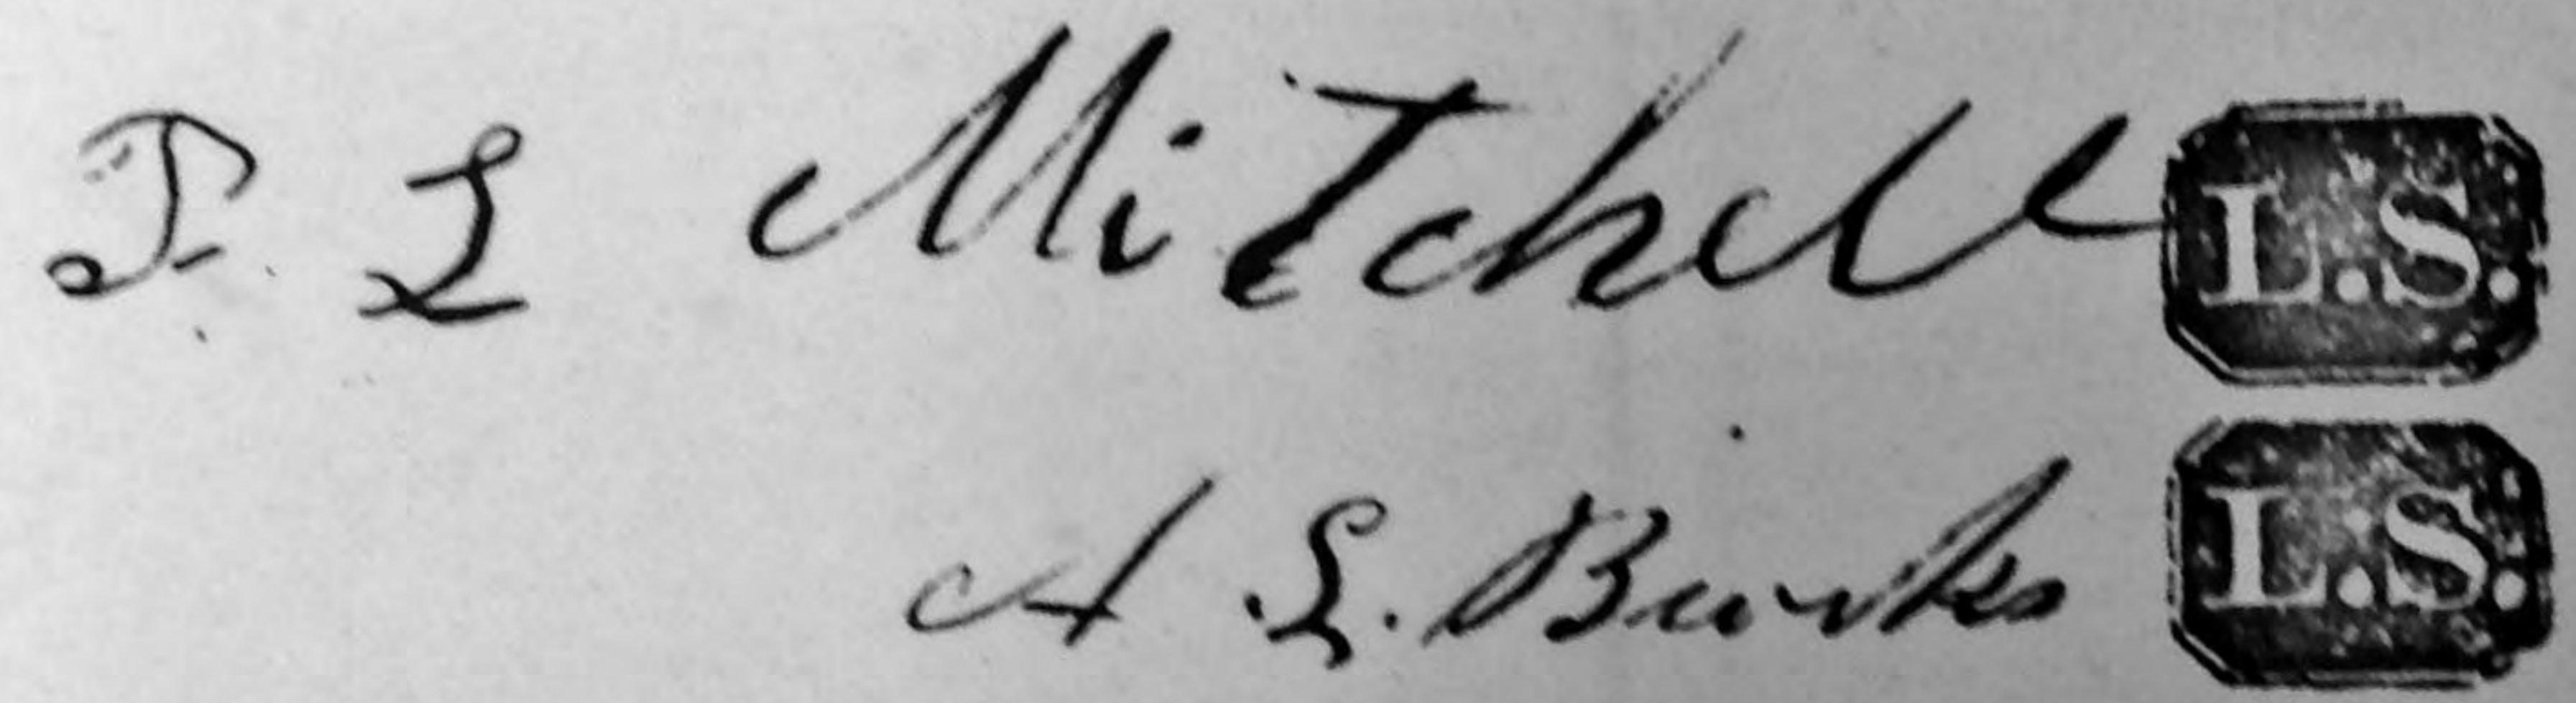 T. L Mitchell L.S.
A L. Burks L.S.